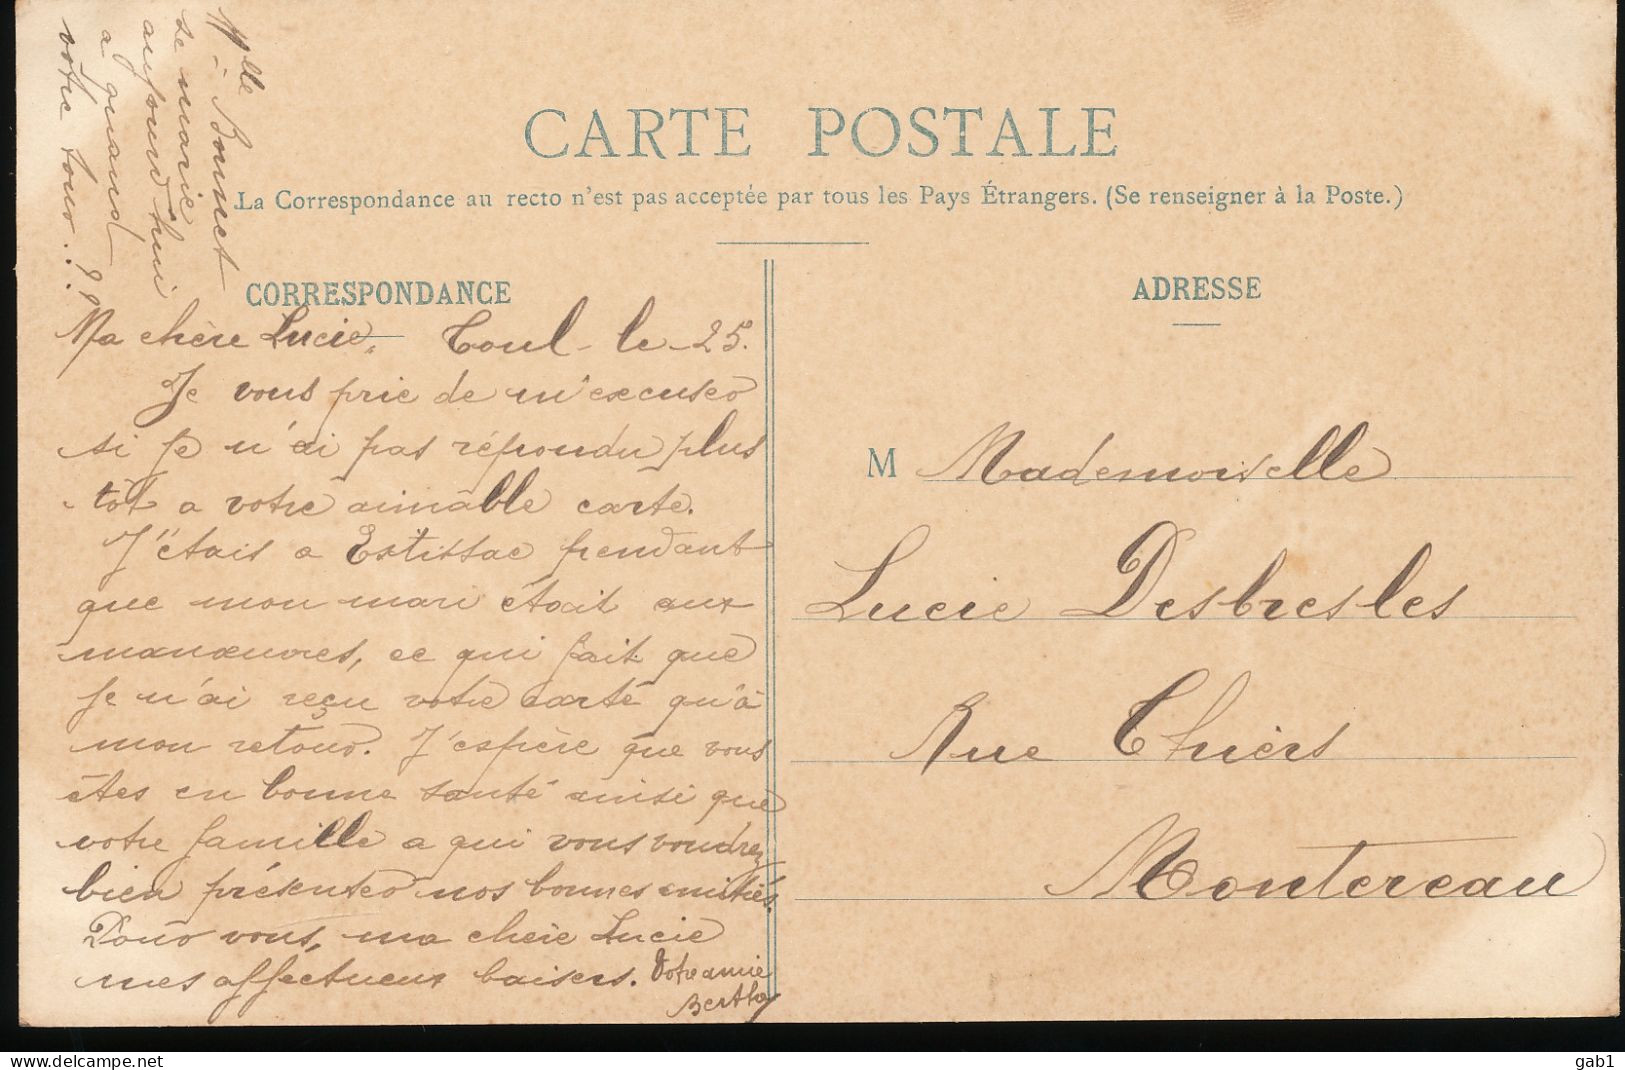 Mlle Bonnet
se marie
aujourd'hui
a quand
votre tour..??
CARTE POSTALE
La Correspondance au recto n'est pas acceptée par tous les Pays Étrangers. (Se renseigner à la Poste.)
CORRESPONDANCE
Ma chère Lucie, Toul - le - 25.
Je vous prie de m'excuser
si je n'ai pas répondu plus
tôt a votre aimable carte.
J'étais a Estissac pendant
que mon mari était aux
manœuvres, ce qui fait que
je n'ai reçu votre carte qu'à
mon retour. J'espère que vous
êtes en bonne santé ainsi que
votre famille a qui vous voudrez
bien présenter nos bonnes amitiés.
Pour vous, ma chère Lucie
mes affectueux baisers. Votre amie
Berthe
ADRESSE
M Mademoiselle
Lucie Desbresles
Rue Thiers
Montereau
delcampe.net
gab1